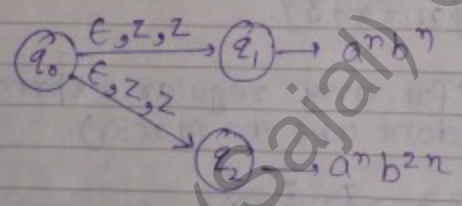 ϵ, z, z
q₀ q₁ → aⁿbⁿ
ϵ, z, z
q₂ → aⁿb²ⁿ
(Sajal)